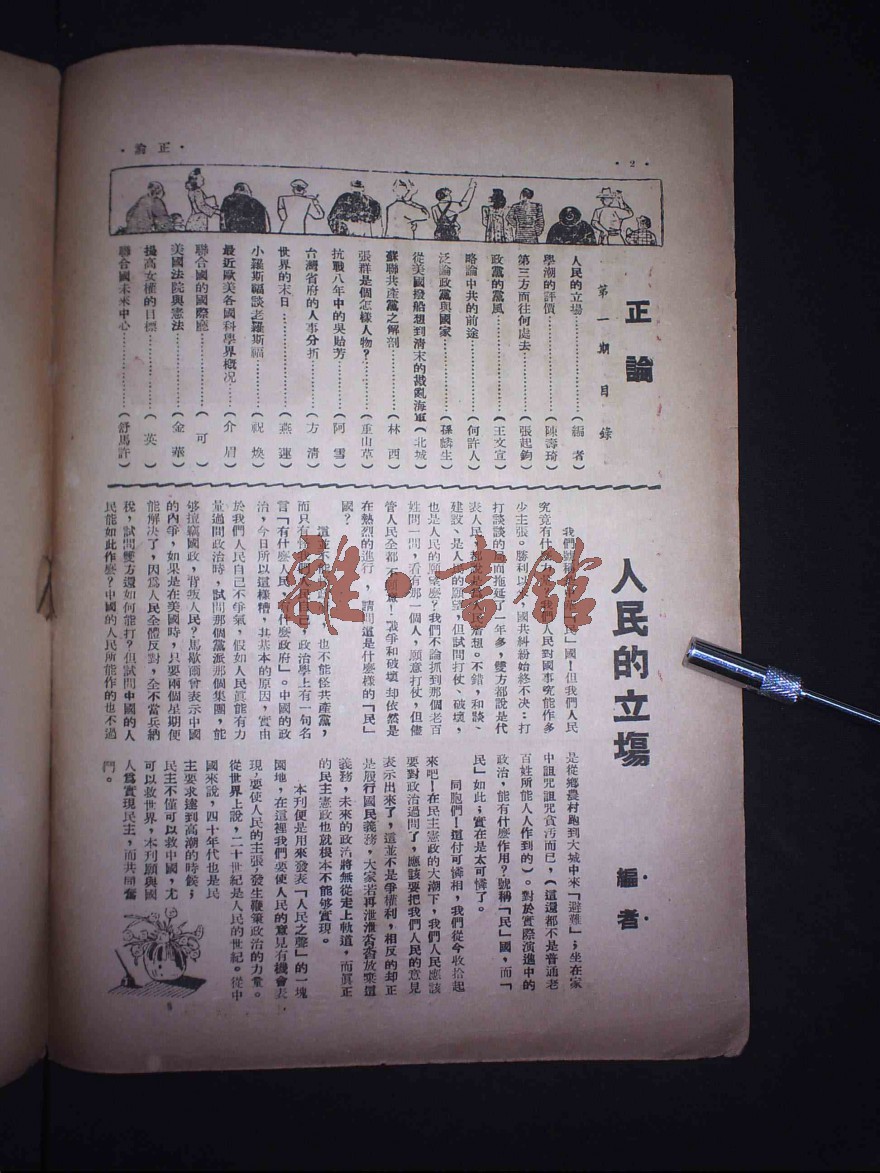 ·正論·
·2·
正論
第一期目錄
人民的立場…………(編者)
學潮的評價…………(陳壽琦)
第三方面往何處去…………(張起鈞)
政黨的黨風…………(王文宣)
略論中共的前途…………(何許人)
泛論政黨與國家…………(孫麟生)
從美國撥船想到清末的戡亂海軍(北城)
蘇聯共產黨之解剖…………(林西)
張群是個怎樣人物?…………(重山草)
抗戰八年中的吳貽芳…………(阿雪)
台灣省府的人事分析…………(方清)
世界的末日…………(燕運)
小羅斯福談老羅斯福…………(祝煥)
最近歐美各國科學界概况…………(介眉)
聯合國的國際廳…………(可)
美國法院與憲法…………(金華)
提高女權的目標…………(英)
聯合國未來中心…………(舒馬許)
人民的立場
編者
我們號稱是中華「民」國!但我們人民
究竟有什麼力量?我們人民對國事究能作多
少主張。勝利以來,國共糾紛始終不决:打
打談談的局面拖延了一年多,雙方都說是代
表人民,都說是為人民着想。不錯,和談、
建設、是人民的願望,但試問打仗、破壞,
也是人民的願望麼?我們不論抓到那個老百
姓問一問,看有那一個人,願意打仗,但儘
管人民全都不願意!戰爭和破壞却依然是
在熱烈的進行,請問這是什麼樣的「民」
國?
這並不能怪政府,也不能怪共產黨,
而只有怪我們人民自己,政治學上有一句名
言「有什麼人民,有什麼政府」。中國的政
治,今日所以這樣糟,其基本的原因,實由
於我們人民自己不爭氣,假如人民眞能有力
量過問政治時,試問那個黨派那個集團,能
够擅竊國政,背叛人民?馬歇爾會表示中國
的內爭,如果是在美國時,只要兩個星期便
能解决了,因為人民全體反對,全不當兵納
稅,試問雙方還如何能打?但試問中國的人
民能如此作麼?中國的人民所能作的也不過
是從鄉農村跑到大城中來「避難」;坐在家
中詛咒詛咒貪污而已,(這還都不是普通老
百姓所能人人作到的)。對於實際演進中的
政治,能有什麼作用?號稱「民」國,而「
民」如此;實在是太可憐了。
同胞們!這付可憐相,我們從今收拾起
來吧!在民主憲政的大潮下,我們人民應該
要對政治過問了,應該要把我們人民的意見
表示出來了,這並不是爭權利,相反的却正
是履行國民義務,大家若再泄泄沓沓放棄這
義務,未來的政治將無從走上軌道,而眞正
的民主憲政也就根本不能够實現。
本刋便是用來發表「人民之聲」的一塊
園地,在這裡我們要使人民的意見有機會表
現,要使人民的主張,發生鞭策政治的力量。
從世界上說,二十世紀是人民的世紀。從中
國來說,四十年代也是民
主要求達到高潮的時候;
民主不僅可以救中國,尤
可以救世界,本刋願與國
人為實現民主,而共同奮
鬥。
雅·書館